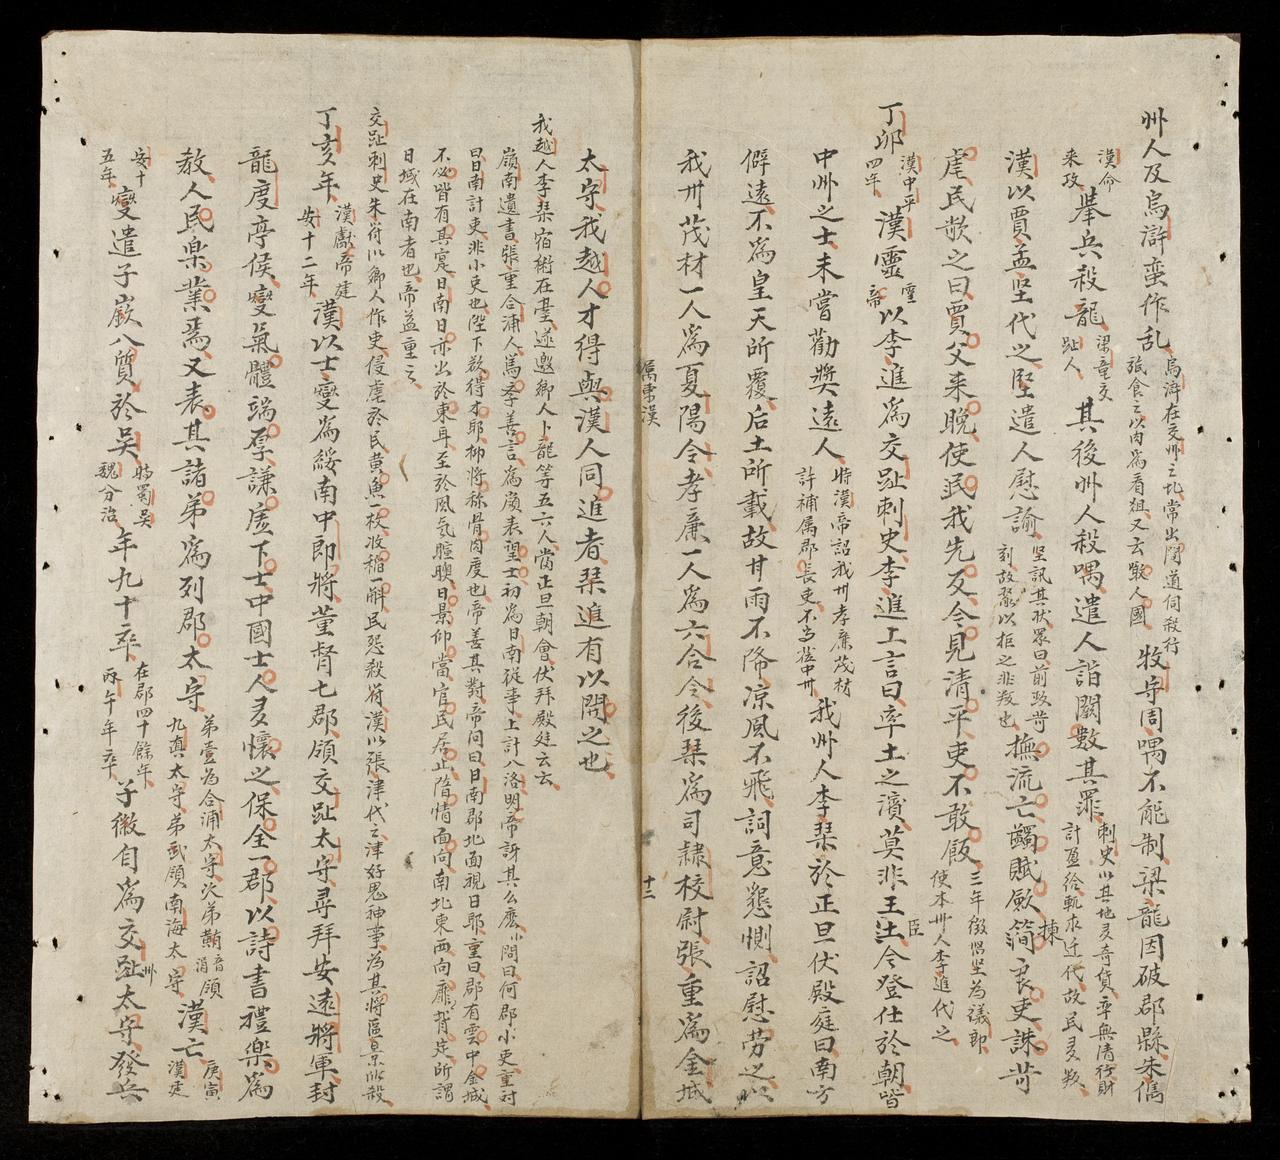 州人及烏滸蛮作乱烏滸在交州之北常出閒道伺殺行
旅食之以肉為肴俎又云噉人國牧守周喁不能制梁龍因破郡縣朱儁
漢命
来攻挙兵殺龍梁竜交
趾人其後州人殺喁遣人詣闕數其罪刺史以其地多奇貨率無清行財
計盈給輒求迁代故民多叛
漢以賈孟坚代之坚遣人慰諭坚訊其状衆曰前政苛
刻故聚以拒之非叛也撫流亡蠲賦歛簡良吏誅苛
揀
虐民歌之曰賈父来晚使我先反今見清平吏不敢飯三年徵坚為議郎
使本州人李進代之
丁卯漢中平
四年漢靈帝以李進為交趾刺史李進上言曰率土之濱莫非王臣今登仕於朝皆
中州之士未嘗勸獎遠人時漢帝詔我州孝廉茂材
許補属郡長吏不当莅中州我州人李琹於正旦伏殿庭曰南方
僻遠不為皇天所覆后土所載故甘雨不降凉風不飛詞意懇惻詔慰劳之以
我州茂材一人為夏陽令孝廉一人為六合令後琹為司隷校尉張重為金城
属東漢
十二
太守我越人才得與漢人同進者琹進有以開之也
我越人李琹宿衛在臺遂邀鄉人卜龍等五六人當正旦朝會伏拜殿廷云云
嶺南遺書張重合浦人篤孝善言為嶺表望士初為日南從事上計入洛明帝訝其么麽問曰何郡小吏重对
曰日南計吏非小吏也陛下欲得才耶抑将称骨肉度也帝善其對帝问曰日南郡北面視日耶重曰郡有雲中金城
不必皆有其寔日南日亦出於東耳至於風氣暄暖日景仰當官民居止随情面向南北東西向廡背定所謂
日域在南者也帝益重之
交趾刺史朱符以鄉人作史侵虐於民黄魚一枚收稲一斛民怨殺符漢以張津代之津好鬼神事為其将區景所殺
丁亥年漢獻帝建
安十二年漢以士燮為綏南中郎将董督七郡領交趾太守尋拜安遠將軍封
龍度亭侯燮氣體端厚謙虚下士中國士人多懷之保全一郡以詩書禮樂為
教人民楽業焉又表其諸弟為列郡太守弟壹為合浦太守次弟䵋音消領
九真太守弟武領南海太守漢亡庚寅
漢建
安十
五年燮遣子廞入質於吳時蜀吳
魏分治年九十卒在郡四十餘年
丙午年卒子徽自為交趾太守發兵
州